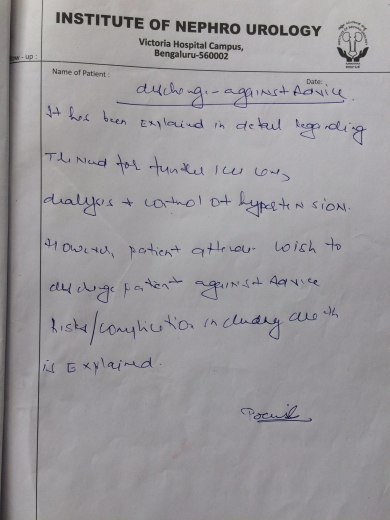 INSTITUTE OF NEPHRO UROLOGY
Victoria Hospital Campus,
Bengaluru-560002
ow - up :
Name of Patient :
Date:
discharge - against Advice.
It has been Explained in detail Regarding
The need for further ICU care,
dialysis & control of hypertension.
However, patient attender wish to
discharge patient against Advice
Risks/complication including death
is Explained.